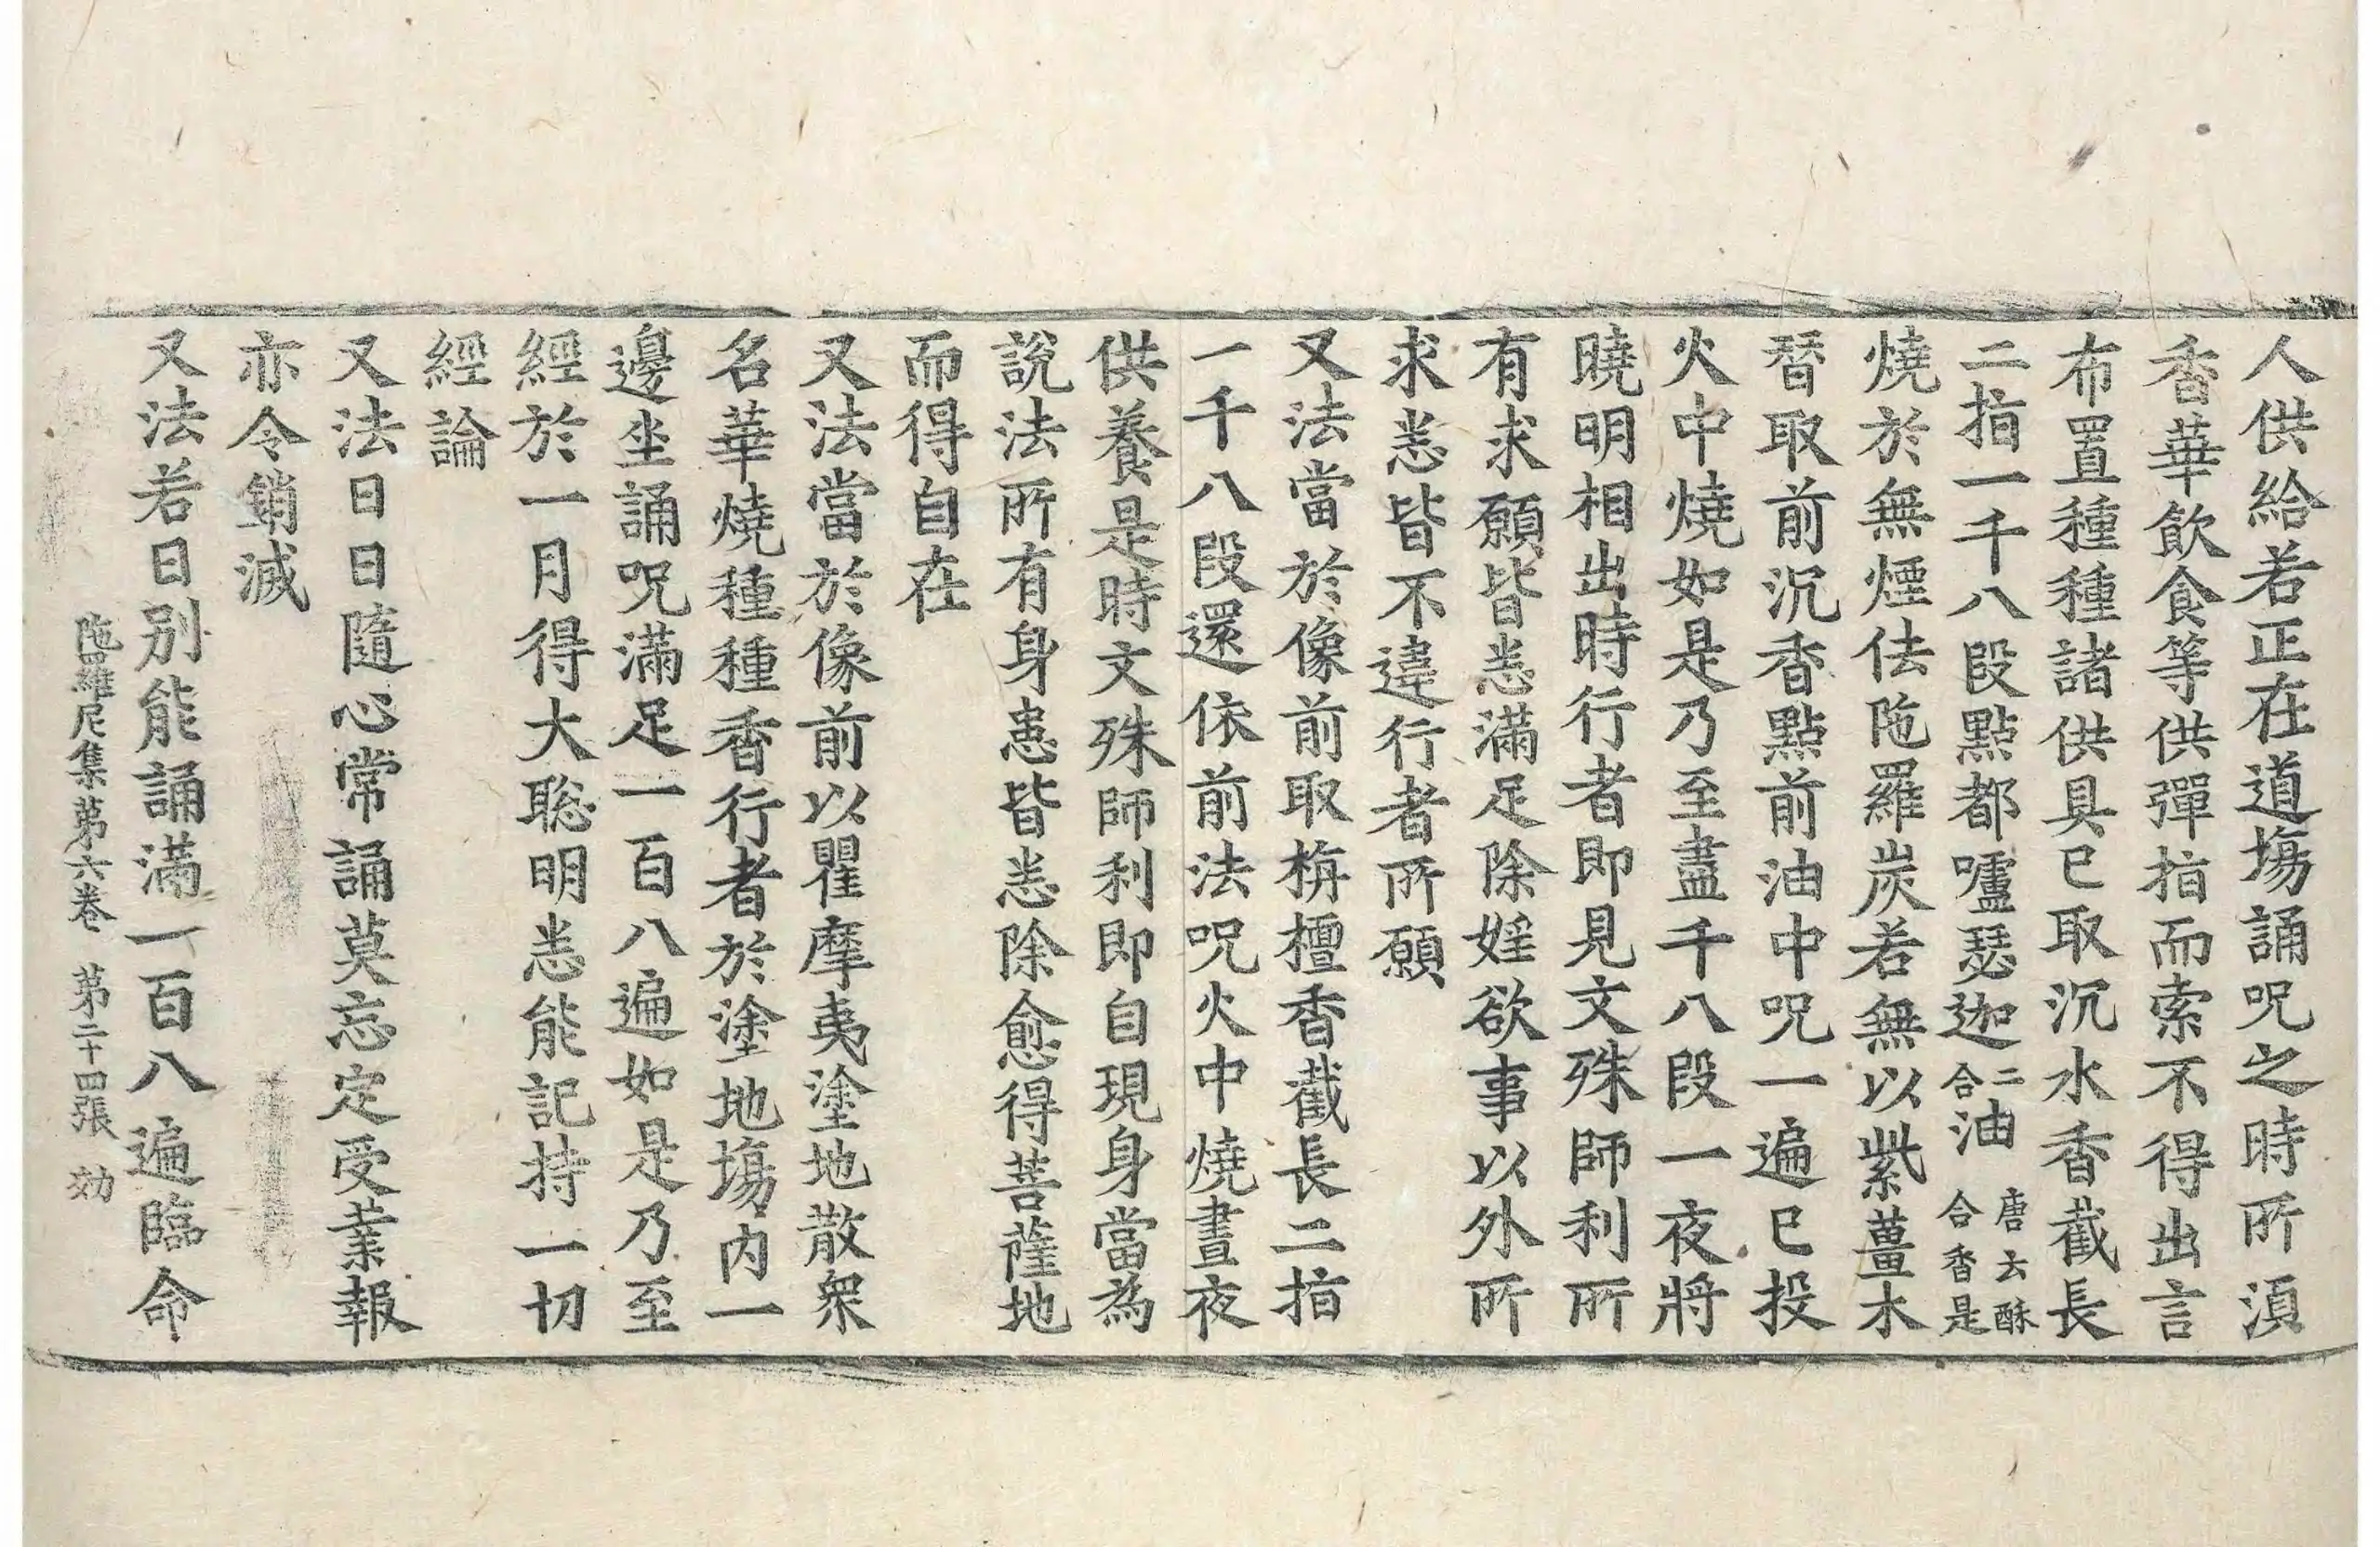 人供給若正在道場誦呪之時所湏
香華飲食等供彈指而索不得出言
布置種種諸供具已取沉水香截長
二指一千八段點都嚧瑟迦二合油唐云酥合香是
燒於無煙佉陁羅炭若無以紫薑木
替取前沉香點前油中呪一遍已投
火中燒如是乃至盡千八段一夜將
曉明相出時行者即見文殊師利所
有求願皆悉滿足除婬欲事以外所
求悉皆不違行者所願
又法當於像前取栴檀香截長二指
一千八段還依前法呪火中燒晝夜
供養是時文殊師利即自現身當為
說法所有身患皆悉除愈得菩薩地
而得自在
又法當於像前以瞿摩夷塗地散衆
名華燒種種香行者於塗地場內一
邊坐誦呪滿足一百八遍如是乃至
經於一月得大聡明悉能記持一切
經論
又法日日隨心常誦莫忘定受業報
亦令銷滅
又法若日別能誦滿一百八遍臨命
陁羅尼集第六卷 第二十四張 効